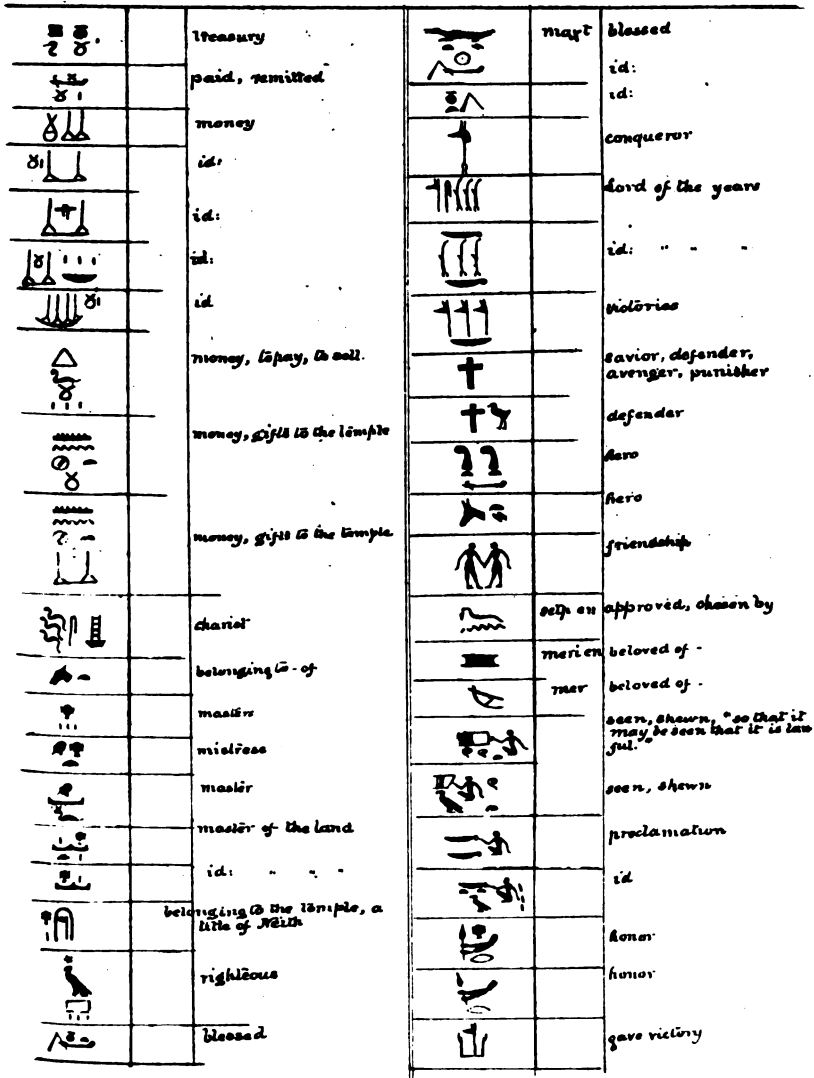 Treasury
paid, remitted
money
id:
id:
id:
id
money, to pay, to sell.
money, gifts to the temple
money, gifts to the temple
chariot
belonging to - of
masters
mistress
master
master of the land
id: " " "
belonging to the temple, a
title of Neith
righteous
blessed
mart blessed
id:
id:
conqueror
Lord of the years
id: " " "
victories
savior, defender,
avenger, punisher
defender
hero
hero
friendship
setp en approved, chosen by
merien beloved of -
mer beloved of -
seen, shewn, "so that it
may be seen that it is law
ful."
seen, shewn
proclamation
id
honor
honor
gave victory